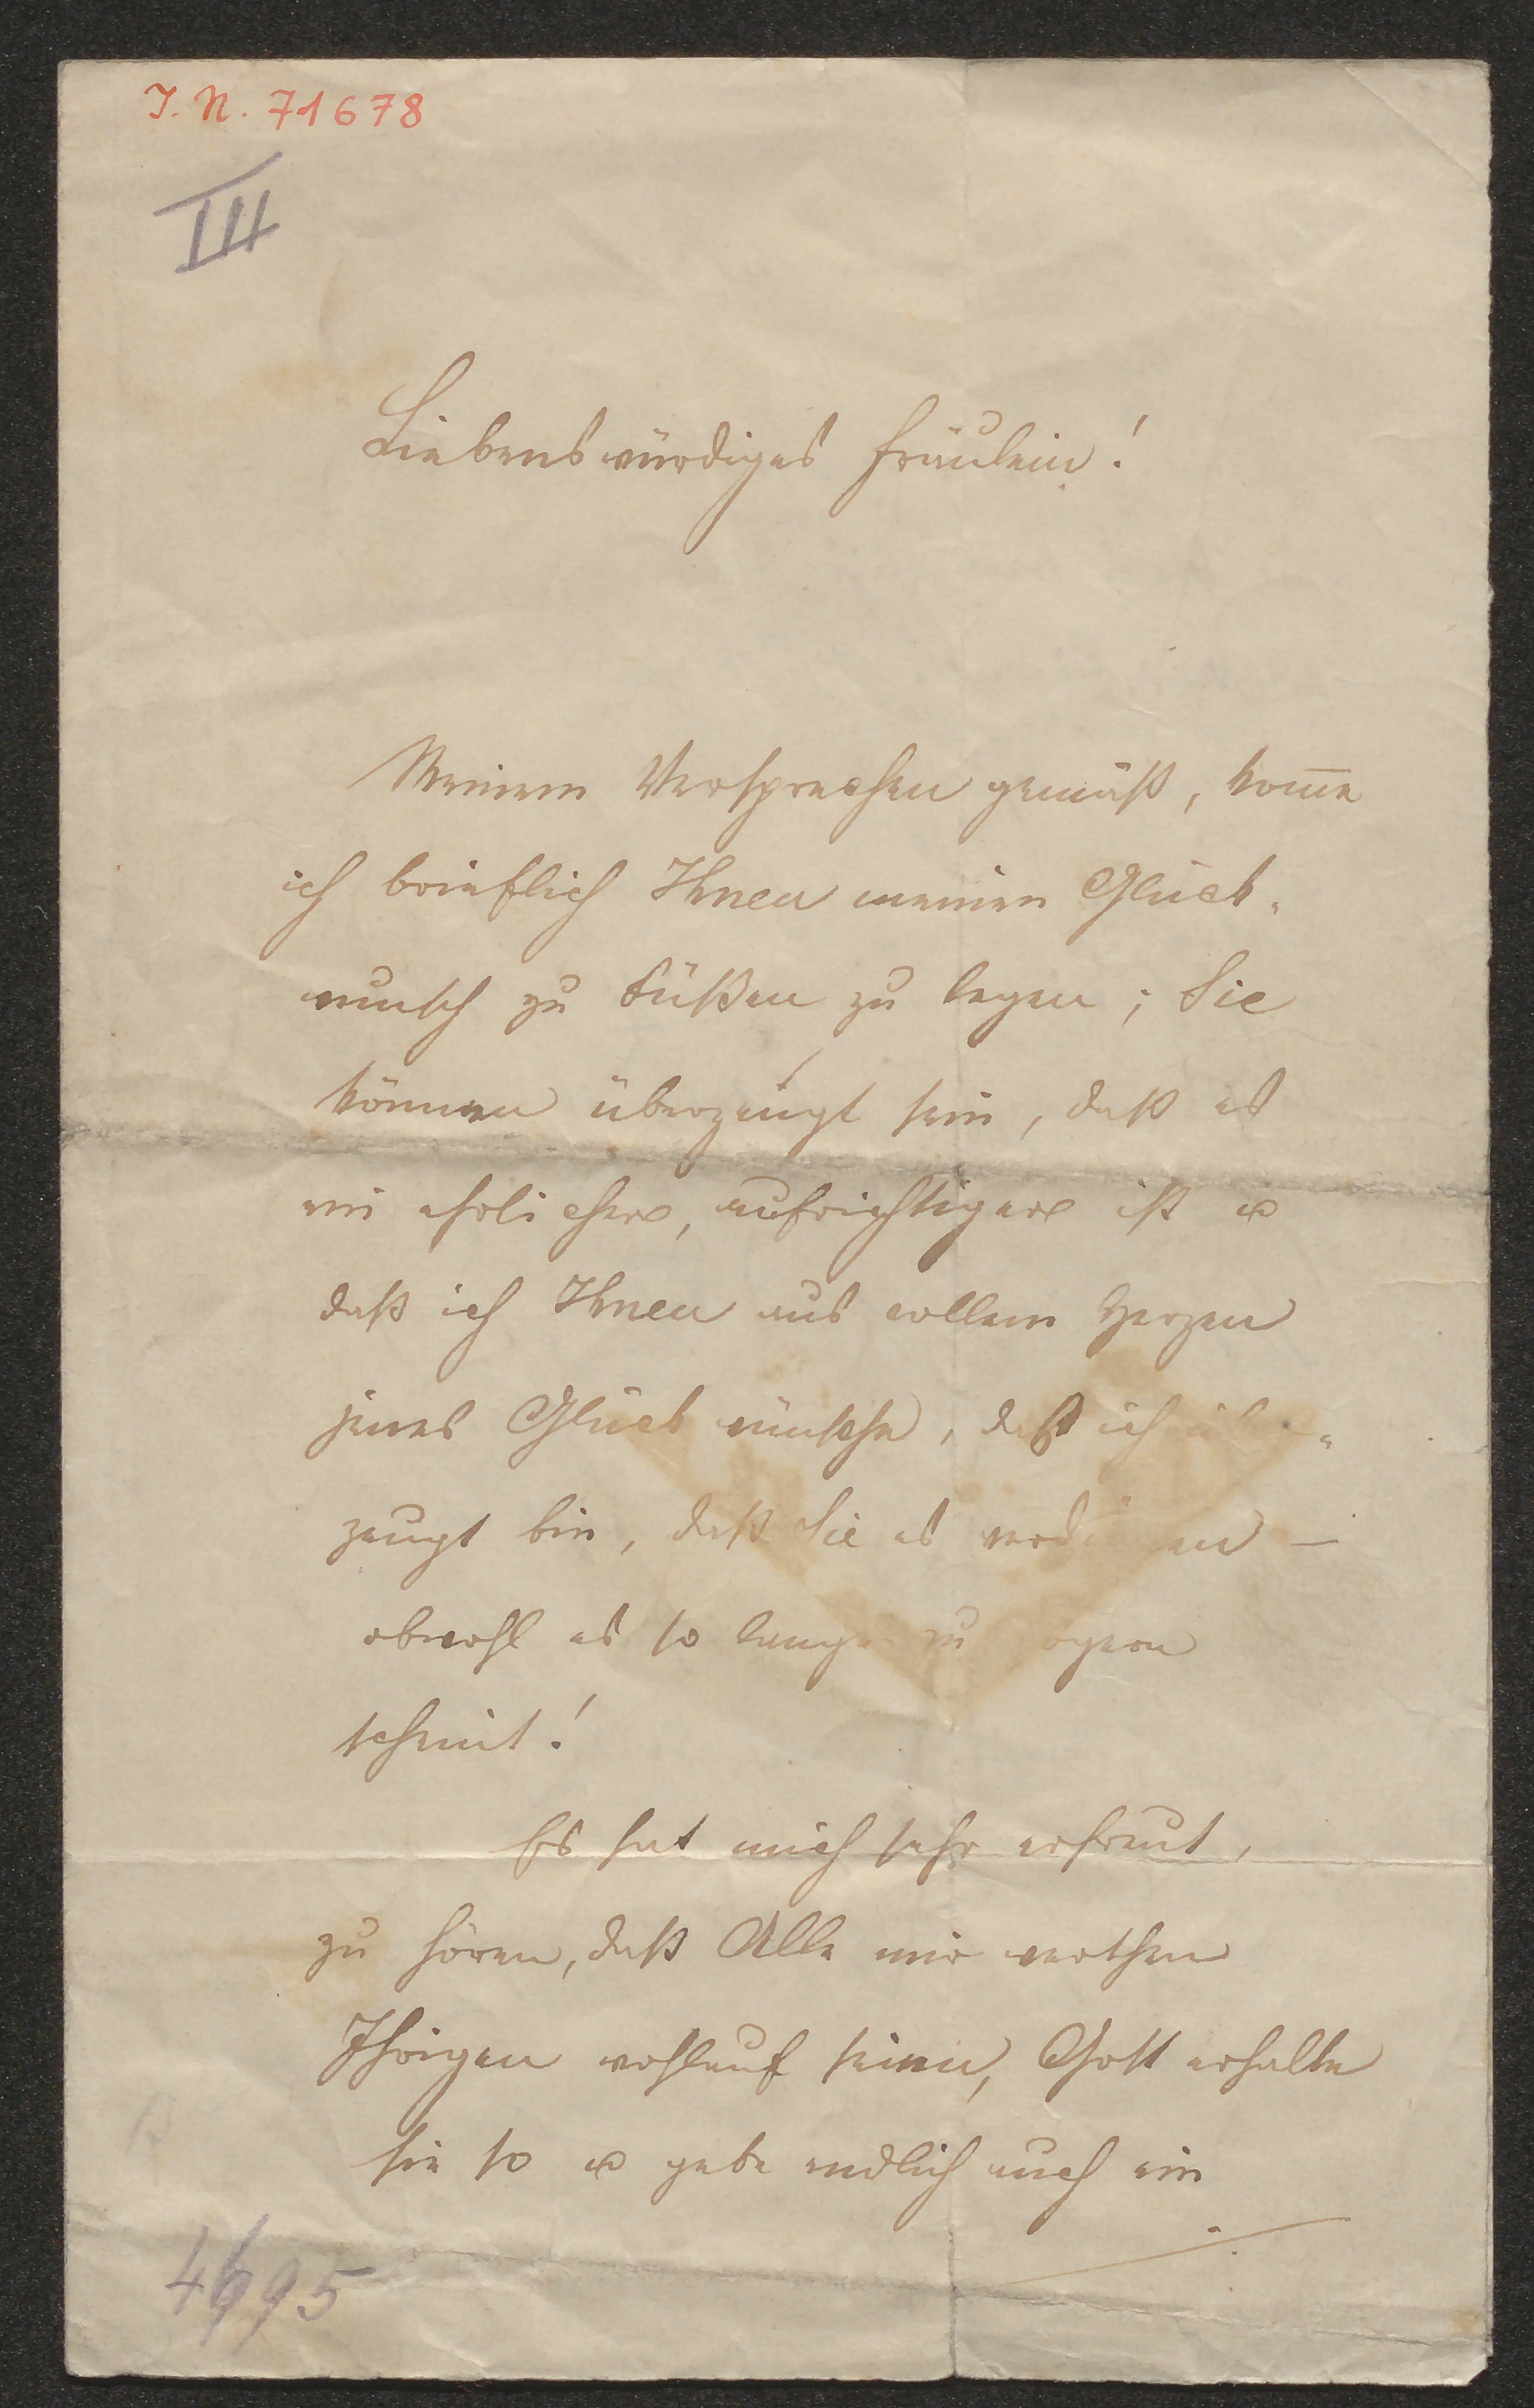 I. N. 71678
III
Liebenswürdiges Fräulein!
Meinem Versprechen gemäß, kom̄e
ich brieflich Ihnen meinen Glück-
wunsch zu Füßen zu legen; Sie
können überzeugt sein, daß es
ein ehrlicher, aufrichtiger ist u
daß ich Ihnen aus vollem Herzen
jenes Glück wünsche, daß ich
zeugt bin, daß Sie es
obwohl es so lange zu
scheint!
Es hat mich sehr erfreut,
zu hören, daß Alle mir werthen
Ihrigen wohlauf seien, Gott erhalte
sie so u gebe endlich auch ein
4695